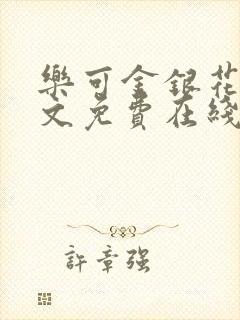 樂可金銀花
文免費在綫
許章強